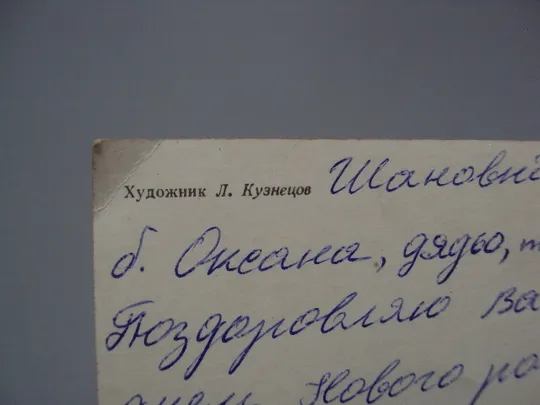 Художник Л. Кузнецов
Шановн
б. Оксана, дядьо, т
Поздоровляю Ва
Нового ро